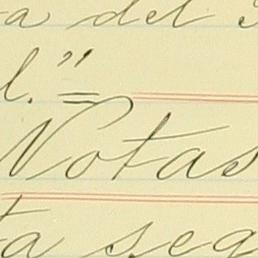 a del
l."=
Notas
ta seg